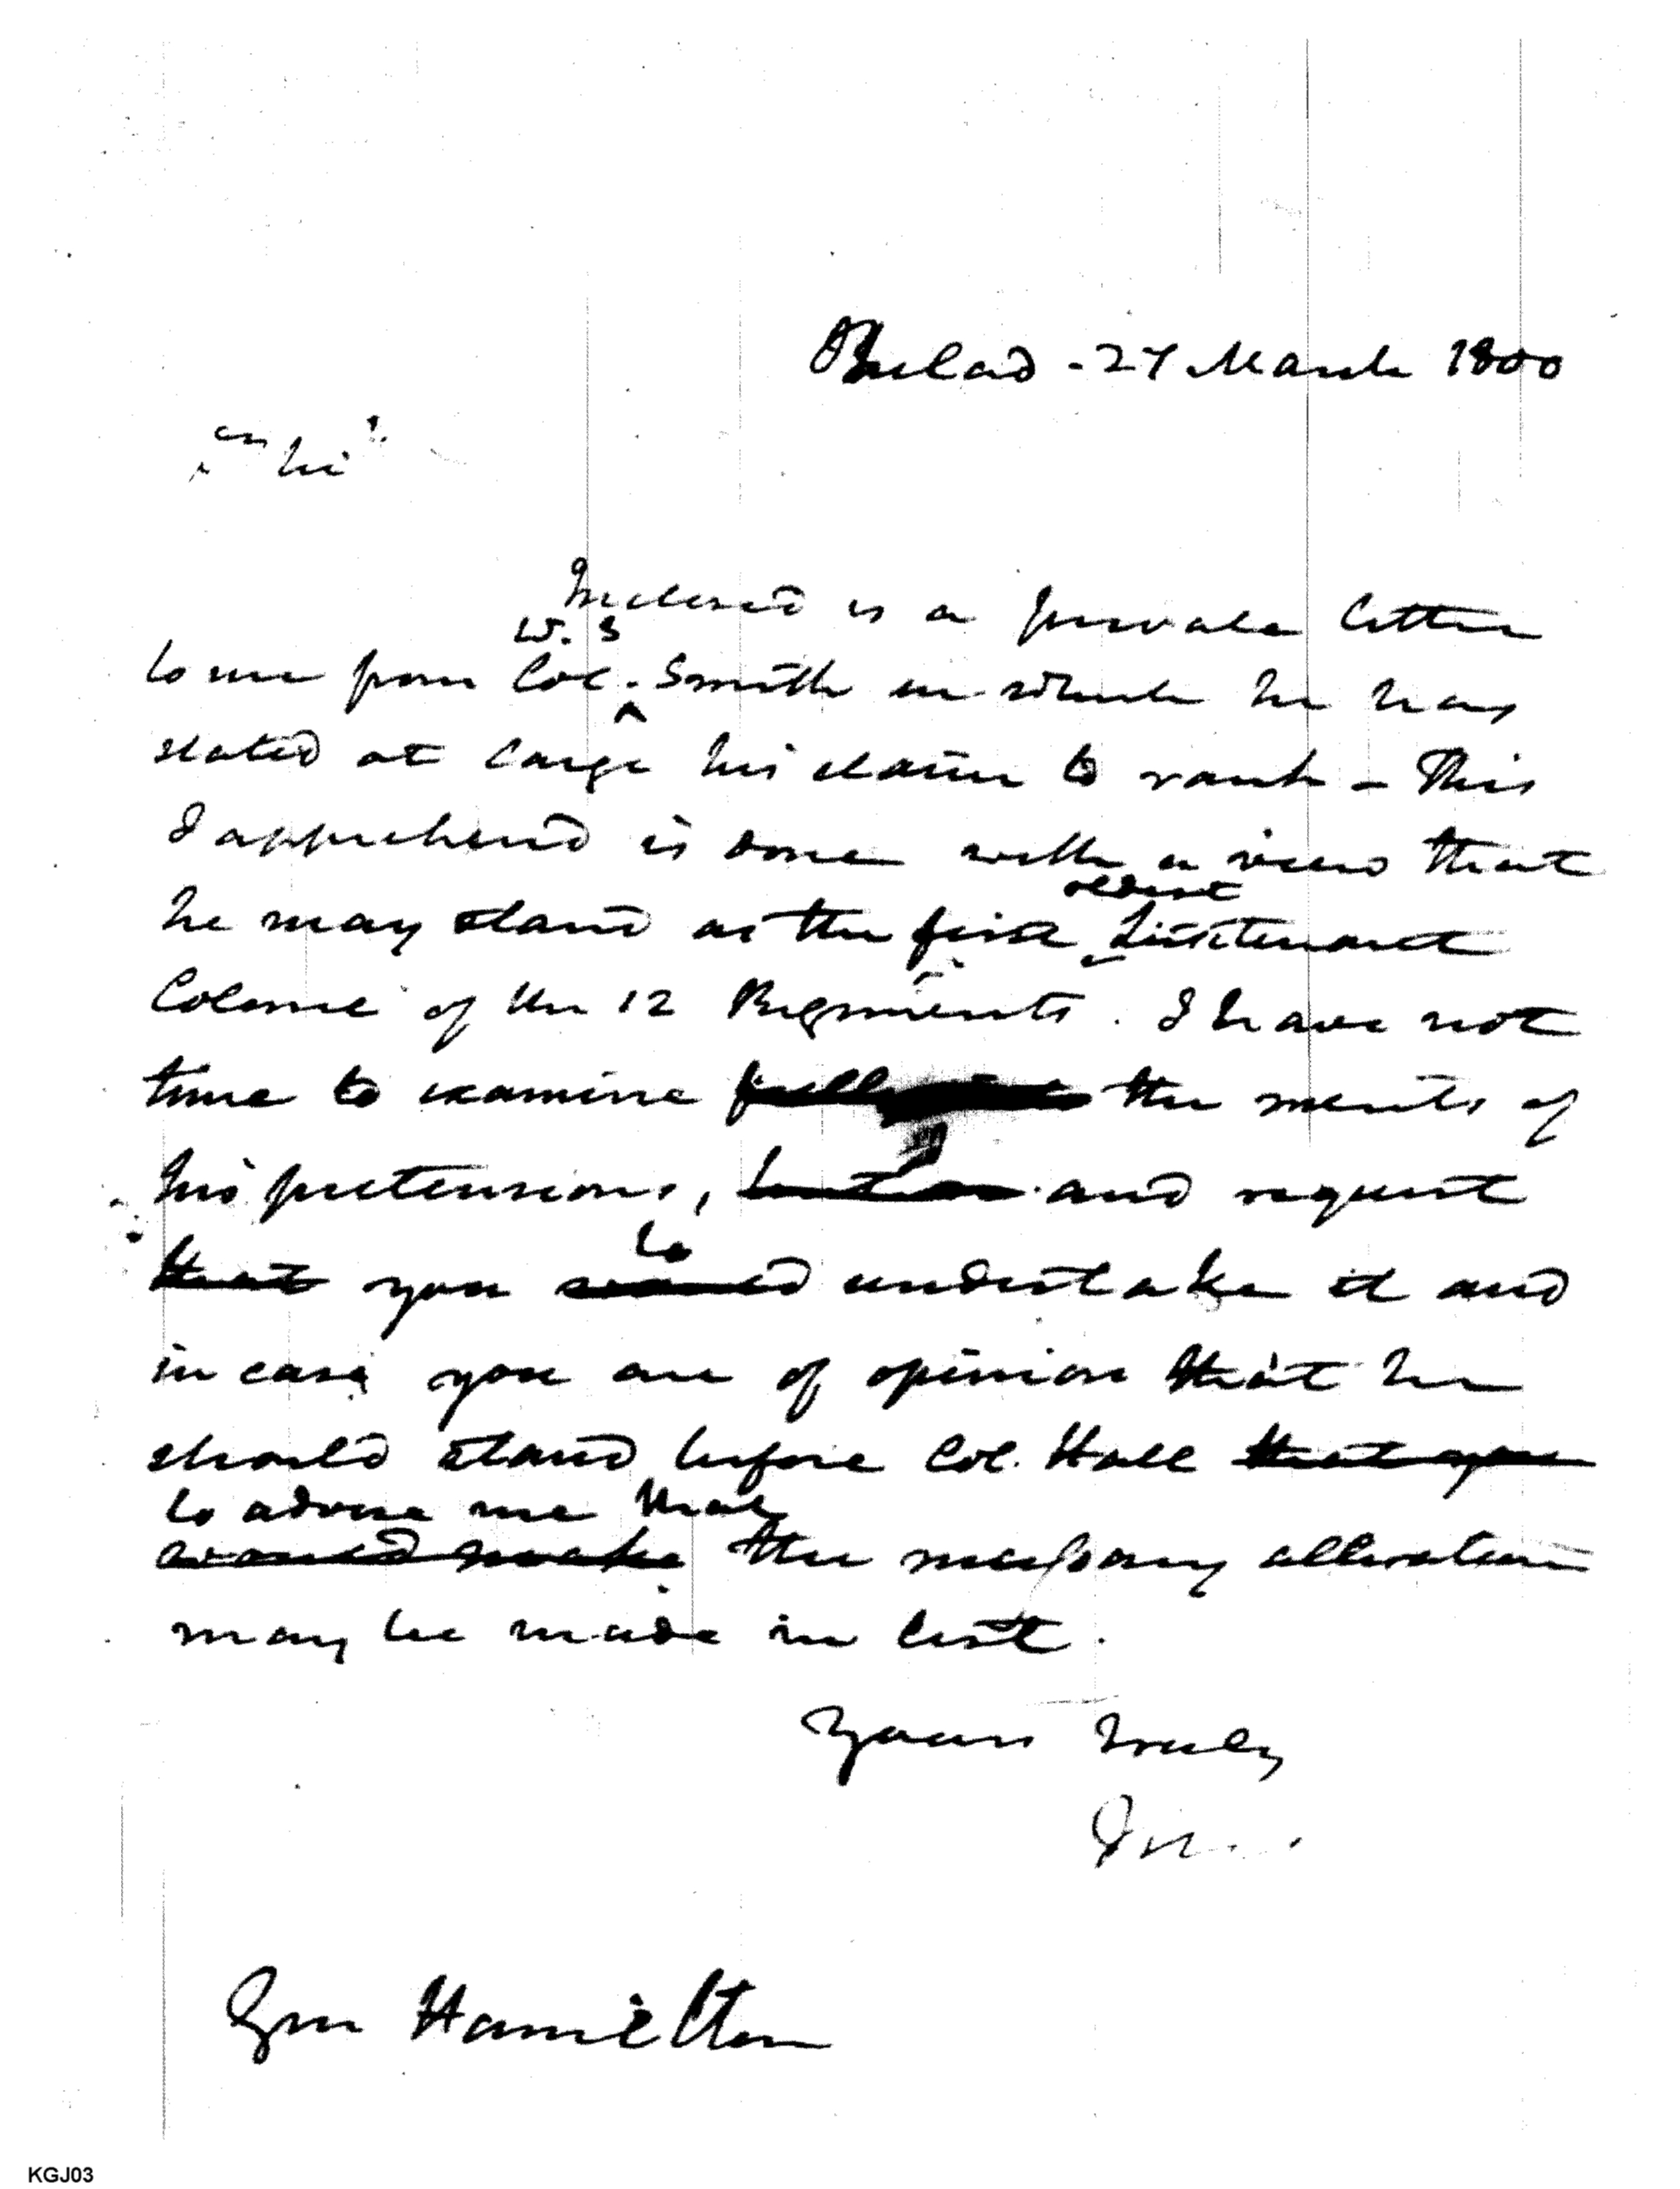 Philad - 27 March 1800
Inclosed is a private letter
W. S
to me from Col. ^ Smith in which he has
stated at large his claim to rank - This
I apprehend is done with a view that
oldest
he may stand as the first Lieutenant
Colonel of the 12 Regiments. I have not
time to examine fully the merits of
his pretensions, and request
to
that you would undertake it and
in case you are of opinion that he
should stand before Col. Hall that you
to advise me that
would make the necessary alteration
may be made in list.
Yours truly
Gen Hamilton
KGJ03